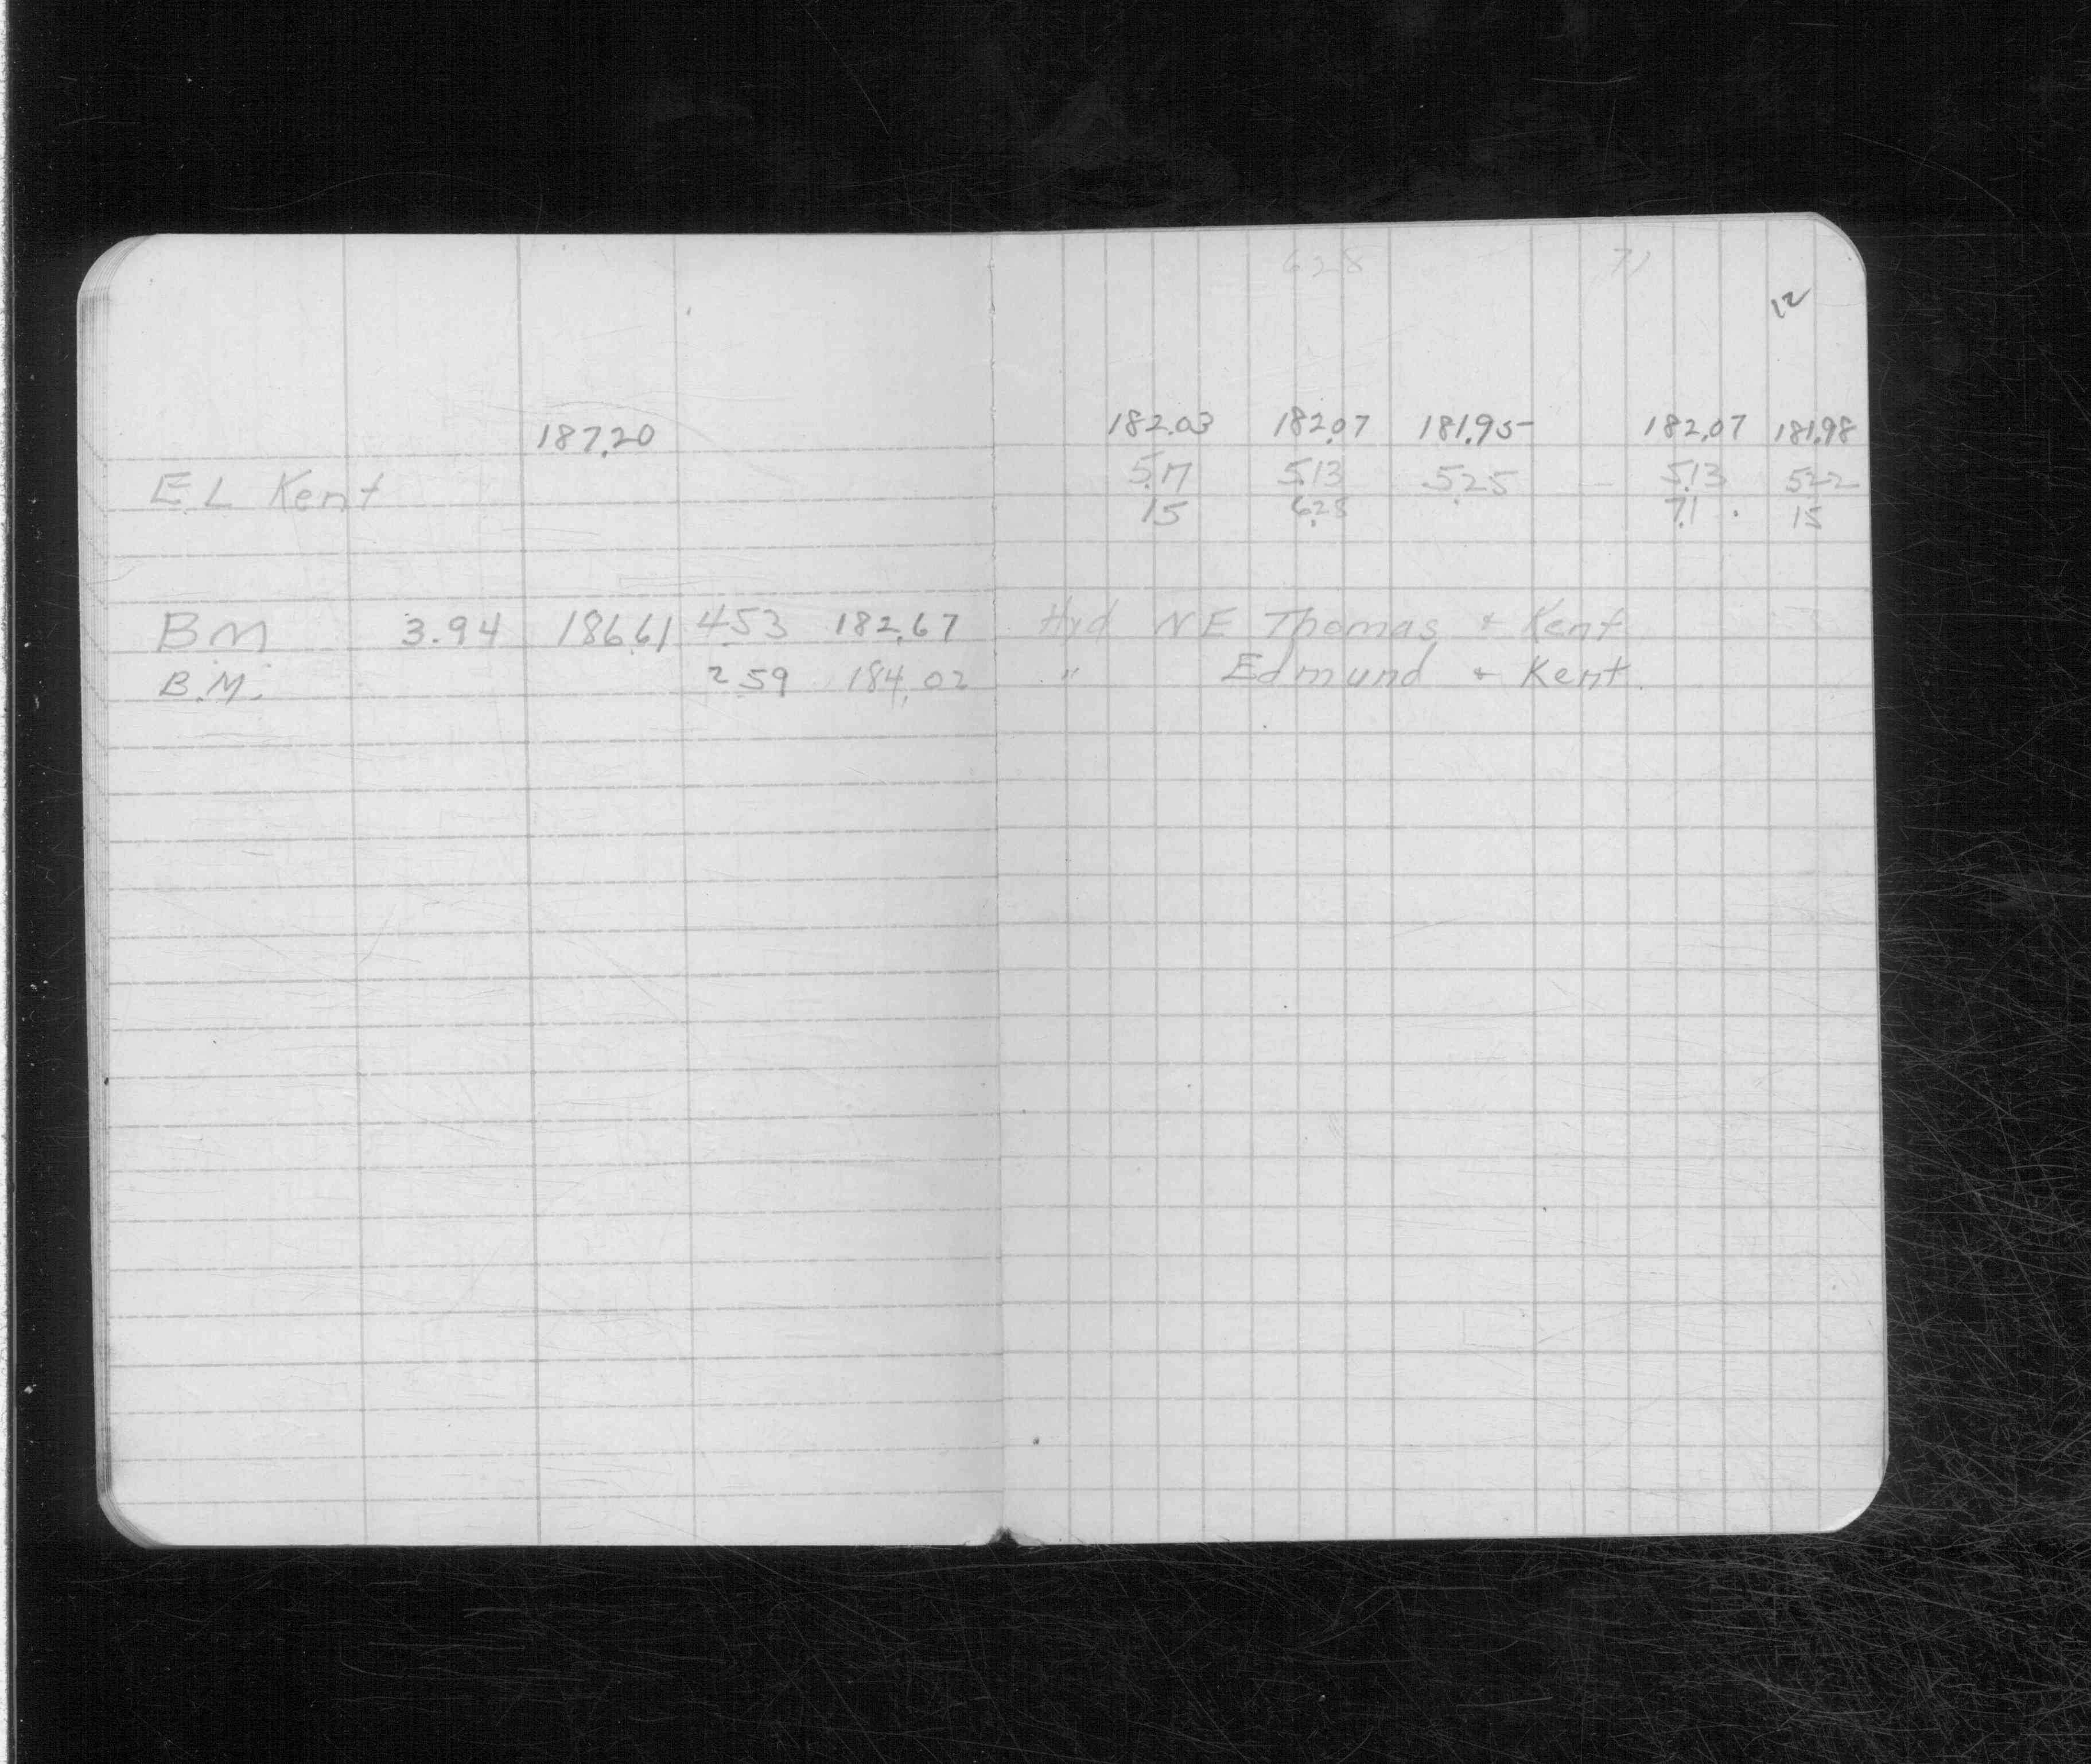 628 71
12
187.20 182.03 182.07 181.95 182.07 181.98
E L Kent 5.17 5.13 5.25 5.13 5.22
15 6.28 7.1 15
BM 3.94 186.61 4.53 182.67 Hyd NE Thomas & Kent
B.M. 2.59 184.02 " Edmund & Kent